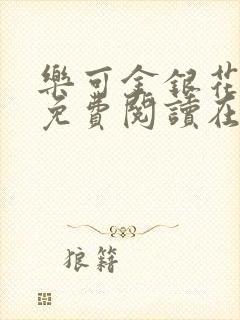 樂可金銀花
免費閱讀在
狼籍